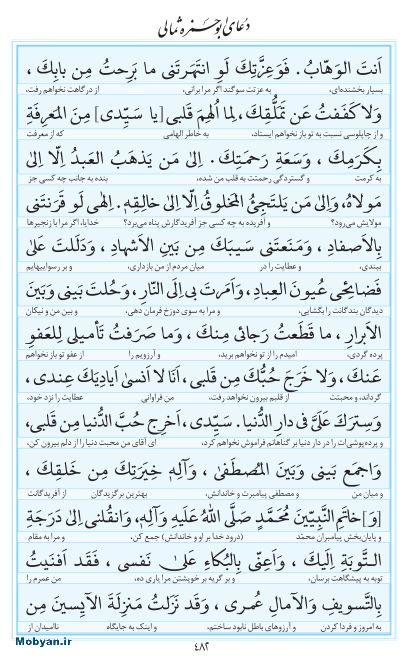 دعای ابوحمزه ثمالی
اَنتَ الوَهّابُ. فَوَعِزَّتِكَ لَوِ انتَهَرتَنی ما بَرِحتُ مِن بابِكَ ،
بسیار بخشنده‌ای، به عزتت سوگند اگر مرا برانی، از درگاهت نخواهم رفت،
وَلا كَفَفتُ عَن تَمَلُّقِكَ، لِما اُلهِمَ قَلبی [یا سَیِّدی] مِنَ المَعرِفَةِ
و از چاپلوسی نسبت به تو باز نخواهم ایستاد، به خاطر الهامی که از معرفت
بِكَرَمِكَ ، وَسَعَةِ رَحمَتِكَ. اِلی مَن یَذهَبُ العَبدُ اِلّا اِلی
به کرمت و گستردگی رحمتت به قلب من شده، بنده به جانب چه کسی جز
مَولاهُ، وَاِلی مَن یَلتَجِئُ المَخلوقُ اِلّا اِلی خالِقِه. اِلهی لَو قَرَنتَنی
مولایش می‌رود؟ و آفریده به چه کسی جز آفریدگارش پناه می‌برد؟ خدایا، اگر مرا با زنجیرها
بِالاَصفادِ ، وَمَنَعتَنی سَیبَكَ مِن بَینِ الاَشهادِ ، وَدَلَلتَ عَلی
ببندی، و عطایت را در میان مردم از من بازداری، و بر رسواییهایم
فَضائِحی عُیونَ العِبادِ، وَاَمَرتَ بی اِلَی النّارِ، وَحُلتَ بَینی وَبَینَ
دیدگان بندگانت را بگشایی، و مرا به سوی دوزخ فرمان دهی، و بین من و نیکان
الاَبرارِ ، ما قَطَعتُ رَجائی مِنكَ ، وَما صَرَفتُ تَأمیلی لِلعَفوِ
پرده گردی، امیدم را از تو نخواهم برید، و آرزویم را از عفو تو باز نخواهم
عَنكَ، وَلا خَرَجَ حُبُّكَ مِن قَلبی، اَنَا لا اَنسی اَیادِیَكَ عِندی،
گرداند، و محبتت از قلبم بیرون نخواهد رفت، من فراوانی عطایت را نزد خود،
وَسِترَكَ عَلَیَّ فی دارِ الدُّنیا. سَیِّدی، اَخرِج حُبَّ الدُّنیا مِن قَلبی ،
و پرده‌پوشی‌ات را در دار دنیا بر گناهانم فراموش نخواهم کرد، ای آقای من محبت دنیا را از دلم بیرون کن،
وَاجمَع بَینی وَبَینَ المُصطَفی، وَآلِهِ خِیَرَتِكَ مِن خَلقِكَ ،
و میان من و مصطفی پیامبرت و خاندانش، بهترین برگزیدگان از آفریدگانت
[وَ]خاتَمِ النَّبِیّینَ مُحَمَّدٍ صَلَّی اللهُ عَلَیهِ وَآلِهِ، وَانقُلنی اِلی دَرَجَةِ
و پایان‌بخش پیامبران محمّد (درود خدا بر او و خاندانش) جمع کن، و مرا به مقام
التَّوبَةِ اِلَیكَ ، وَاَعِنّی بِالبُكاءِ عَلی نَفسی ، فَقَد اَفنَیتُ
توبه به پیشگاهت برسان، و بر گریه بر خویشتن مرا یاری ده، من عمرم را
بِالتَّسویفِ وَالآمالِ عُمری ، وَقَد نَزَلتُ مَنزِلَةَ الآیِسینَ مِن
به امروز و فردا کردن و آرزوهای باطل نابود ساختم، و اینک به جایگاه ناامیدان از
Mobyan.ir
۴۸۲